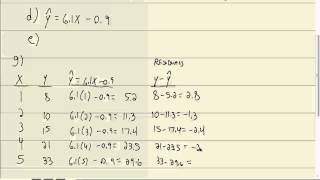 d) ŷ = 6.1X - 0.9
e)
g) RESIDUALS
X Y ŷ = 6.1X - 0.9 y - ŷ
1 8 6.1(1) - 0.9 = 5.2 8 - 5.2 = 2.8
2 10 6.1(2) - 0.9 = 11.3 10 - 11.3 = -1.3
3 15 6.1(3) - 0.9 = 17.4 15 - 17.4 = -2.4
4 21 6.1(4) - 0.9 = 23.5 21 - 23.5 = -2
5 33 6.1(5) - 0.9 = 29.6 33 - 29.6 =